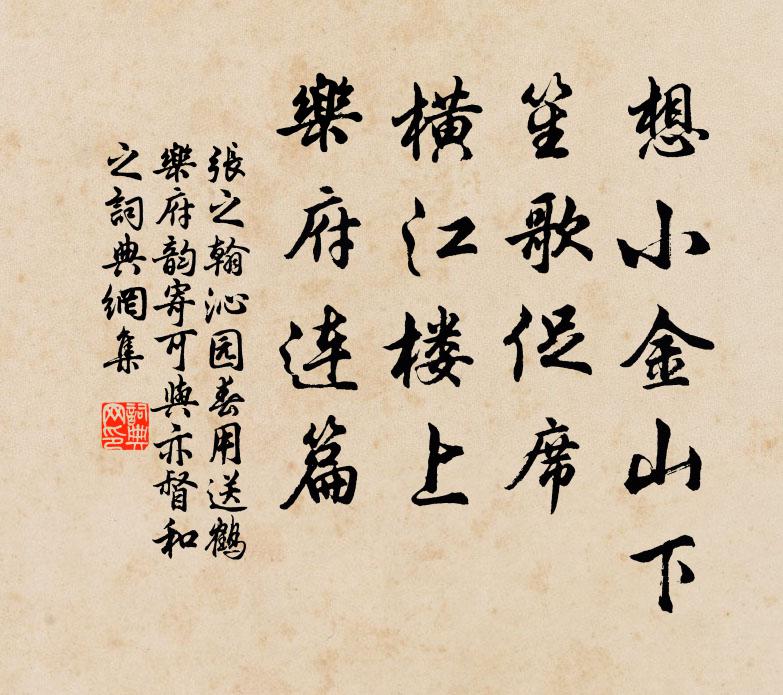 想小金山下
笙歌促席
横江楼上
樂府连篇
張之翰沁园春用送鶴
樂府韵寄可與亦督和
之詞典網集
詞典網印